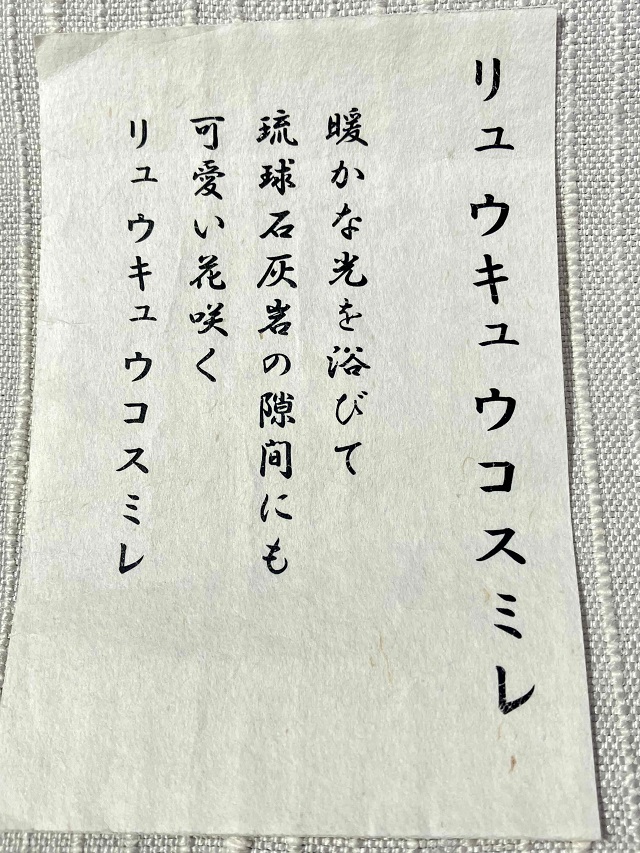 リュウキュウコスミレ
暖かな光を浴びて
琉球石灰岩の隙間にも
可愛い花咲く
リュウキュウコスミレ